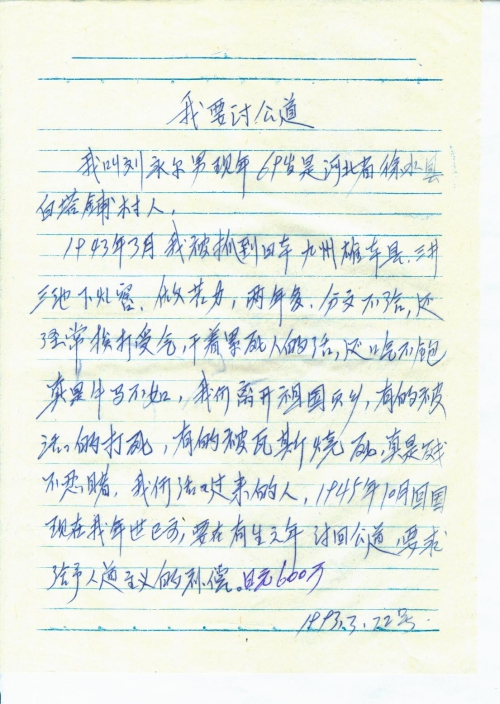 我要讨公道
我叫刘永尔男现年69岁是河北省徐水县
白塔铺村人，
1943年3月我被抓到日本九州 本县.三井
三池 做苦力，两年多，分文不给，还
经常挨打受气，干着累死人的活，还吃不饱
真是牛马不如，我们离开祖国 乡，有的被
活活的打死，有的被瓦斯烧死，真是
不忍目睹，我们活过来的人，1945年10月回国
现在我年 要在有生之年讨回公道，要求
给予人道主义的补偿。日元600万
1993.3.22号.